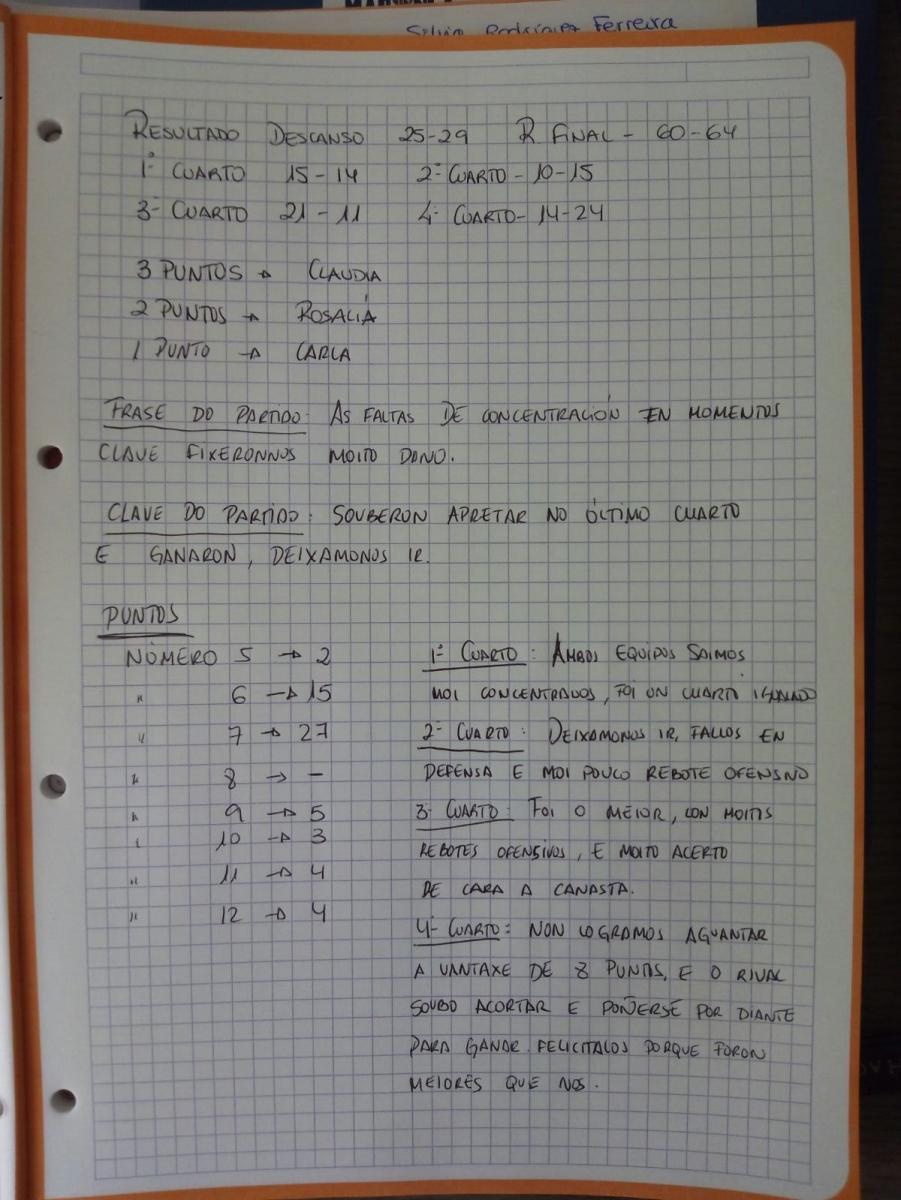 Silvia Rodríguez Ferreira
RESULTADO DESCANSO 25-29 R FINAL - 60-64
1º CUARTO 15-14 2º CUARTO - 10-15
3º CUARTO 21-11 4º CUARTO - 14-24
3 PUNTOS → CLAUDIA
2 PUNTOS → ROSALÍA
1 PUNTO → CARLA
FRASE DO PARTIDO: AS FALTAS DE CONCENTRACIÓN EN MOMENTOS
CLAVE FIXERONNOS MOITO DANO.
CLAVE DO PARTIDO: SOUBERON APRETAR NO ÚLTIMO CUARTO
E GANARON, DEIXAMONOS IR.
PUNTOS
NÚMERO 5 → 2
" 6 → 15
" 7 → 27
" 8 → -
" 9 → 5
" 10 → 3
" 11 → 4
" 12 → 4
1º CUARTO: AMBOS EQUIPOS SAIMOS
MOI CONCENTRADOS, FOI UN CUARTO IGUALADO
2º CUARTO: DEIXAMONOS IR, FALLOS EN
DEFENSA E MOI POUCO REBOTE OFENSIVO
3º CUARTO: FOI O MEIOR, CON MOITOS
REBOTES OFENSIVOS, E MOITO ACERTO
DE CARA A CANASTA.
4º CUARTO: NON LOGRAMOS AGUANTAR
A VANTAXE DE 8 PUNTOS, E O RIVAL
SOUBO ACORTAR E POÑERSE POR DIANTE
PARA GANAR. FELICITALOS PORQUE FORON
MEIORES QUE NOS.